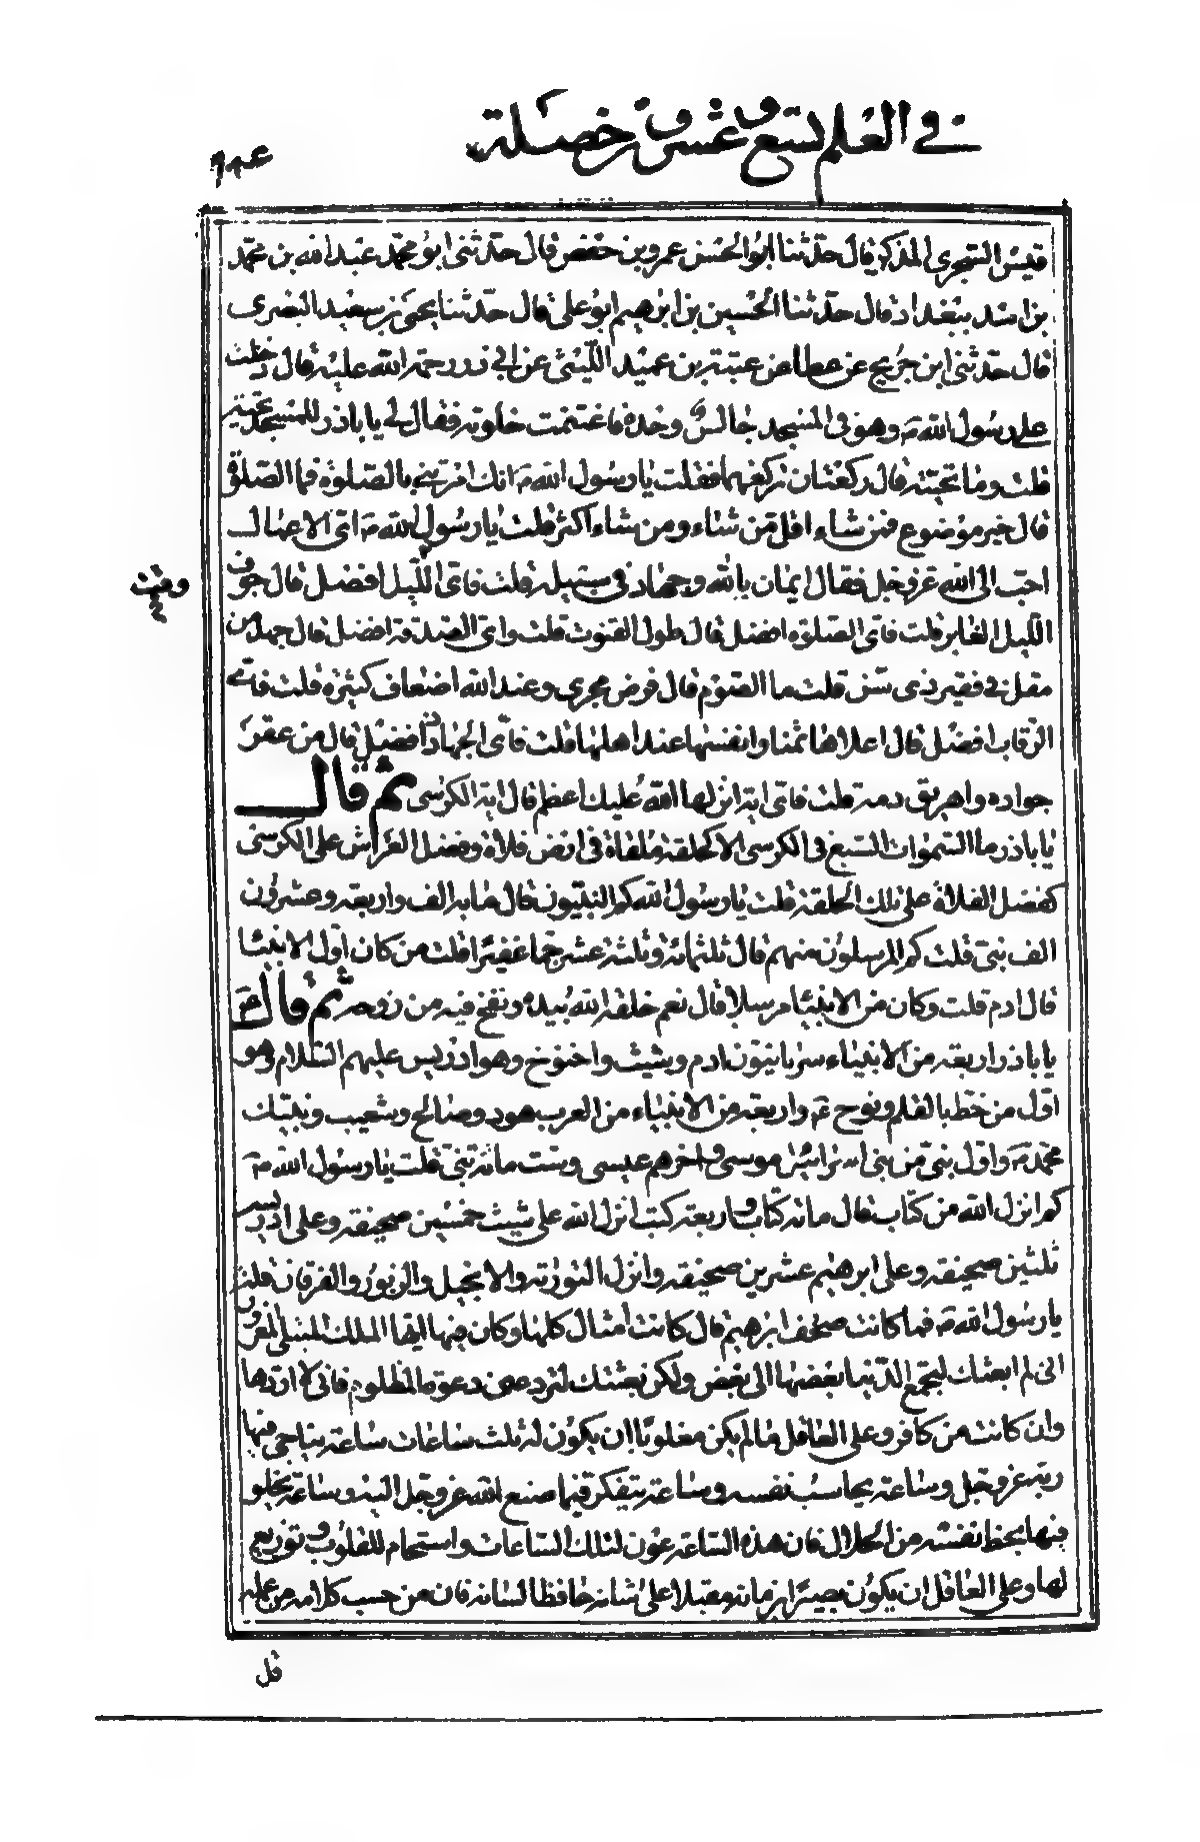 في العلم تسع وعشرون خصلة
قيس السجزى المذكر قال حدثنا ابو الحسن عمرو بن حفص قال حدثنى ابو محمد عبد الله بن محمد
بن اسد ببغداد قال حدثنا الحسين بن ابرهيم ابو على قال حدثنا يحيى بن سعيد البصرى
قال حدثنى ابن جريج عن عطا عن عتبة بن عميد الليثى عن ابي ذر رحمة الله عليه قال دخلت
على رسول الله ص وهو فى المسجد جالس وحده فاغتنمت خلوته فقال لي يا باذر للمسجد تحية
قلت وما تحيته قال ركعتان تركعهما فقلت يا رسول الله ص انك امرتنى بالصلوة فما الصلوة
قال خير موضوع فمن شاء اقل من شاء ومن شاء اكثر قلت يا رسول الله ص اى الاعمال
احب الى الله عز وجل فقال ايمان بالله وجهاد فى سبيله قلت فاى الليل افضل قال جوف
الليل الغابر قلت فاى الصلوة افضل قال طول القنوت قلت واى الصدقة افضل قال جهد من
مقل في فقير ذى سن قلت ما الصوم قال فرض مجرى وعند الله اضعاف كثيرة قلت فاى
الرقاب افضل قال اعلاها ثمنا وانفسها عند اهلها قلت فاى الجهاد افضل قال من عقر
جواده واهريق دمه قلت فاى اية انزلها الله عليك اعظم قال اية الكرسى ثم قال
يا باذر ما السموات السبع فى الكرسى الا كحلقة ملقاة فى ارض فلاة وفضل العرش على الكرسى
كفضل الفلاة على تلك الحلقة قلت يا رسول الله كم النبيون قال مايه الف واربعة وعشرون
الف نبى قلت كم المرسلون منهم قال ثلثمائة وثلثة عشر جما غفيرا قلت من كان اول الانبيا
قال ادم قلت وكان من الانبياء مرسلا قال نعم خلقه الله بيده ونفخ فيه من روحه ثم قال ص
يا باذر اربعة من الانبياء سريانيون ادم وشيث واخنوخ وهو ادريس عليهم السلام وهو
اول من خط بالقلم ونوح ع واربعة من الانبياء من العرب هود وصالح وشعيب ونبيك
محمد ص واول نبى من بنى اسرائيل موسى واخرهم عيسى وست مائة نبى قلت يا رسول الله ص
كم انزل الله من كتاب قال مائة كتاب واربعة كتب انزل الله على شيث خمسين صحيفة وعلى ادريس
ثلثين صحيفة وعلى ابرهيم عشرين صحيفة وانزل التورية والانجيل والزبور والفرقان قلت
يا رسول الله ص فما كانت صحف ابرهيم قال كانت امثال كلها وكان فيها ايها الملك المبتلى المغرور
انى لم ابعثك لتجمع الدنيا بعضها الى بعض ولكن بعثتك لترد عنى دعوة المظلوم فانى لا اردها
وان كانت من كافر وعلى العاقل ما لم يكن مغلوبا ان يكون له ثلث ساعات ساعة يناجى فيها
ربه عز وجل وساعة يحاسب نفسه وساعة يتفكر فيما صنع الله عز وجل اليه وساعة يخلو
فيها بحظ نفسه من الحلال فان هذه الساعة عون لتلك الساعات واستجمام للقلوب وتوزيع
لها وعلى العاقل ان يكون بصيرا بزمانه مقبلا على شانه حافظا للسانه فان من حسب كلامه من عمله
قل